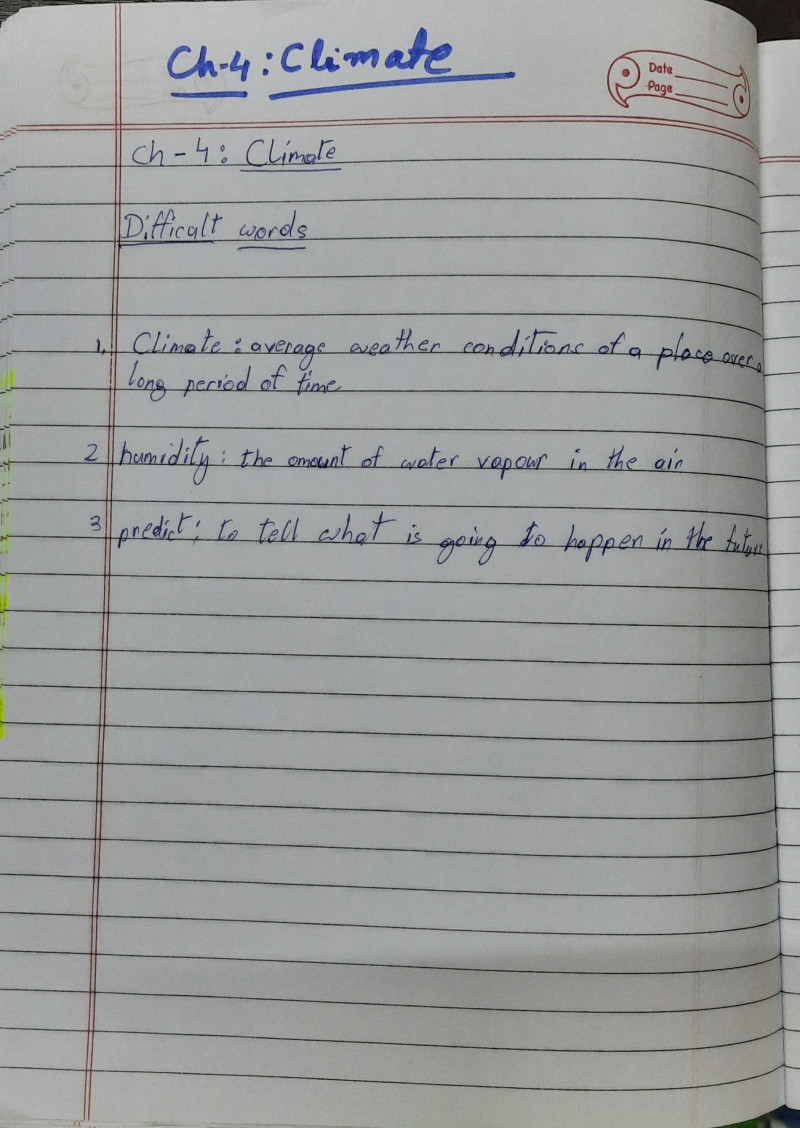 Ch-4: Climate
Date
Page
Ch-4: Climate
Difficalt words
1. Climate: average weather conditions of a place over a
long period of time
2 humidity: the amount of water vapour in the air
3 predict: to tell what is going to happen in the future